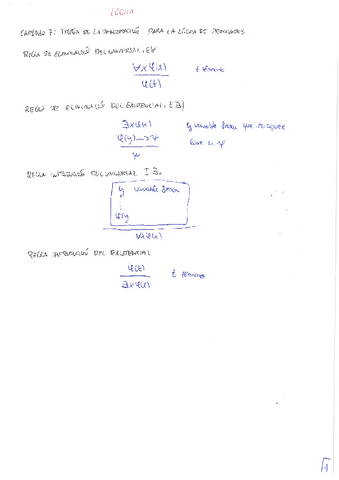 LÓGICA
CAPÍTULO 7: TEORÍA DE LA DEMOSTRACIÓN PARA LA LÓGICA DE PREDICADOS
REGLA DE ELIMINACIÓN DEL UNIVERSAL. E∀
∀x φ(x)
φ(t)
t término
REGLA DE ELIMINACIÓN DEL EXISTENCIAL. E∃)
∃x φ(x)
φ(y) → ψ
ψ
y variable que no
libre en ψ
REGLA INTRODUCCIÓN DEL UNIVERSAL I
y variable
⋮
φ(y)
∀x φ(x)
REGLA INTRODUCCIÓN DEL EXISTENCIAL
φ(t)
∃x φ(x)
t término
1